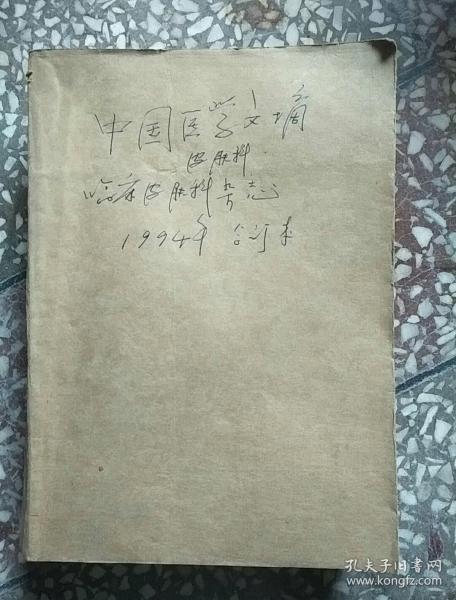 中国医学文摘
皮肤科
临床皮肤科杂志
1994年 合订本
孔夫子旧书网
www.kongfz.com